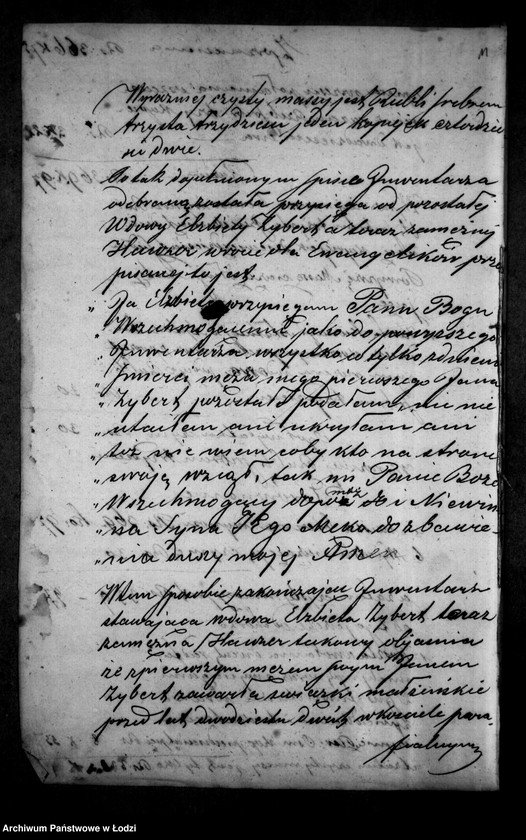 11
Wyraźniej czysty massy jest Rubli srebrem
trzysta trzydzieści jeden kopiejek czterdzie
ści dwie.
Po tak dopełnionym spisie Inwentarza
odebraną została przysięga od pozostałej
Wdowy Elżbiety Zybert a teraz zamężnej
Hauzer w rocie dla Ewangelików prze
pisanej to jest.
„ Ja Elżbieta przysięgam Panu Bogu
„ Wszechmogącemu jako do powyższego
„ Inwentarza wszystko co tylko z dniem
„ śmierci męża mego pierwszego Jana
„ Zybert pozostało podałam, nic nie
„ utaiłam ani ukryłam ani
„ też nie wiem coby kto na stronę
„ swoją wziął, tak mi Panie Boże
„ Wszechmogący dopomóż i Niewin
„ na Syna Jego Męka do zbawie-
„ nia duszy mojej Amen
W tem sposobie zakończając Inwentarz
stawająca wdowa Elżbieta Zybert teraz
zamężna Hauzer takowy objaśnia
że z pierwszym mężem swym Janem
Zybert zawarła związki małżeńskie
przed lat dwudziestu dwóch w kościele para
fialnym
Archiwum Państwowe w Łodzi